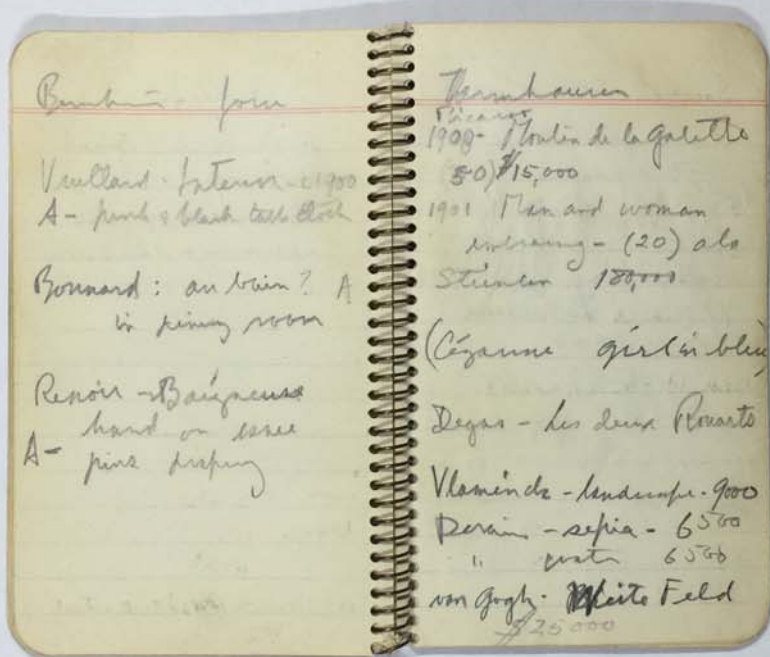 Vuillard - Interior - c1900
A- pink & black table cloth
Bonnard: au bain? A
in dining room
Renoir - Baigneuse
hand on
A- pink drapery
Thannhauser
Picasso
1900- Moulin de la Galette
50) $15,000
1901 Man and woman
embracing - (20) a la
Steinlen 180,000
(Cézanne girl in bleu)
Degas - Les deux Rouarts
Vlaminck - landscape - 9000
Derain - sepia - 6500
" 6500
van Gogh - White Feld
$25000